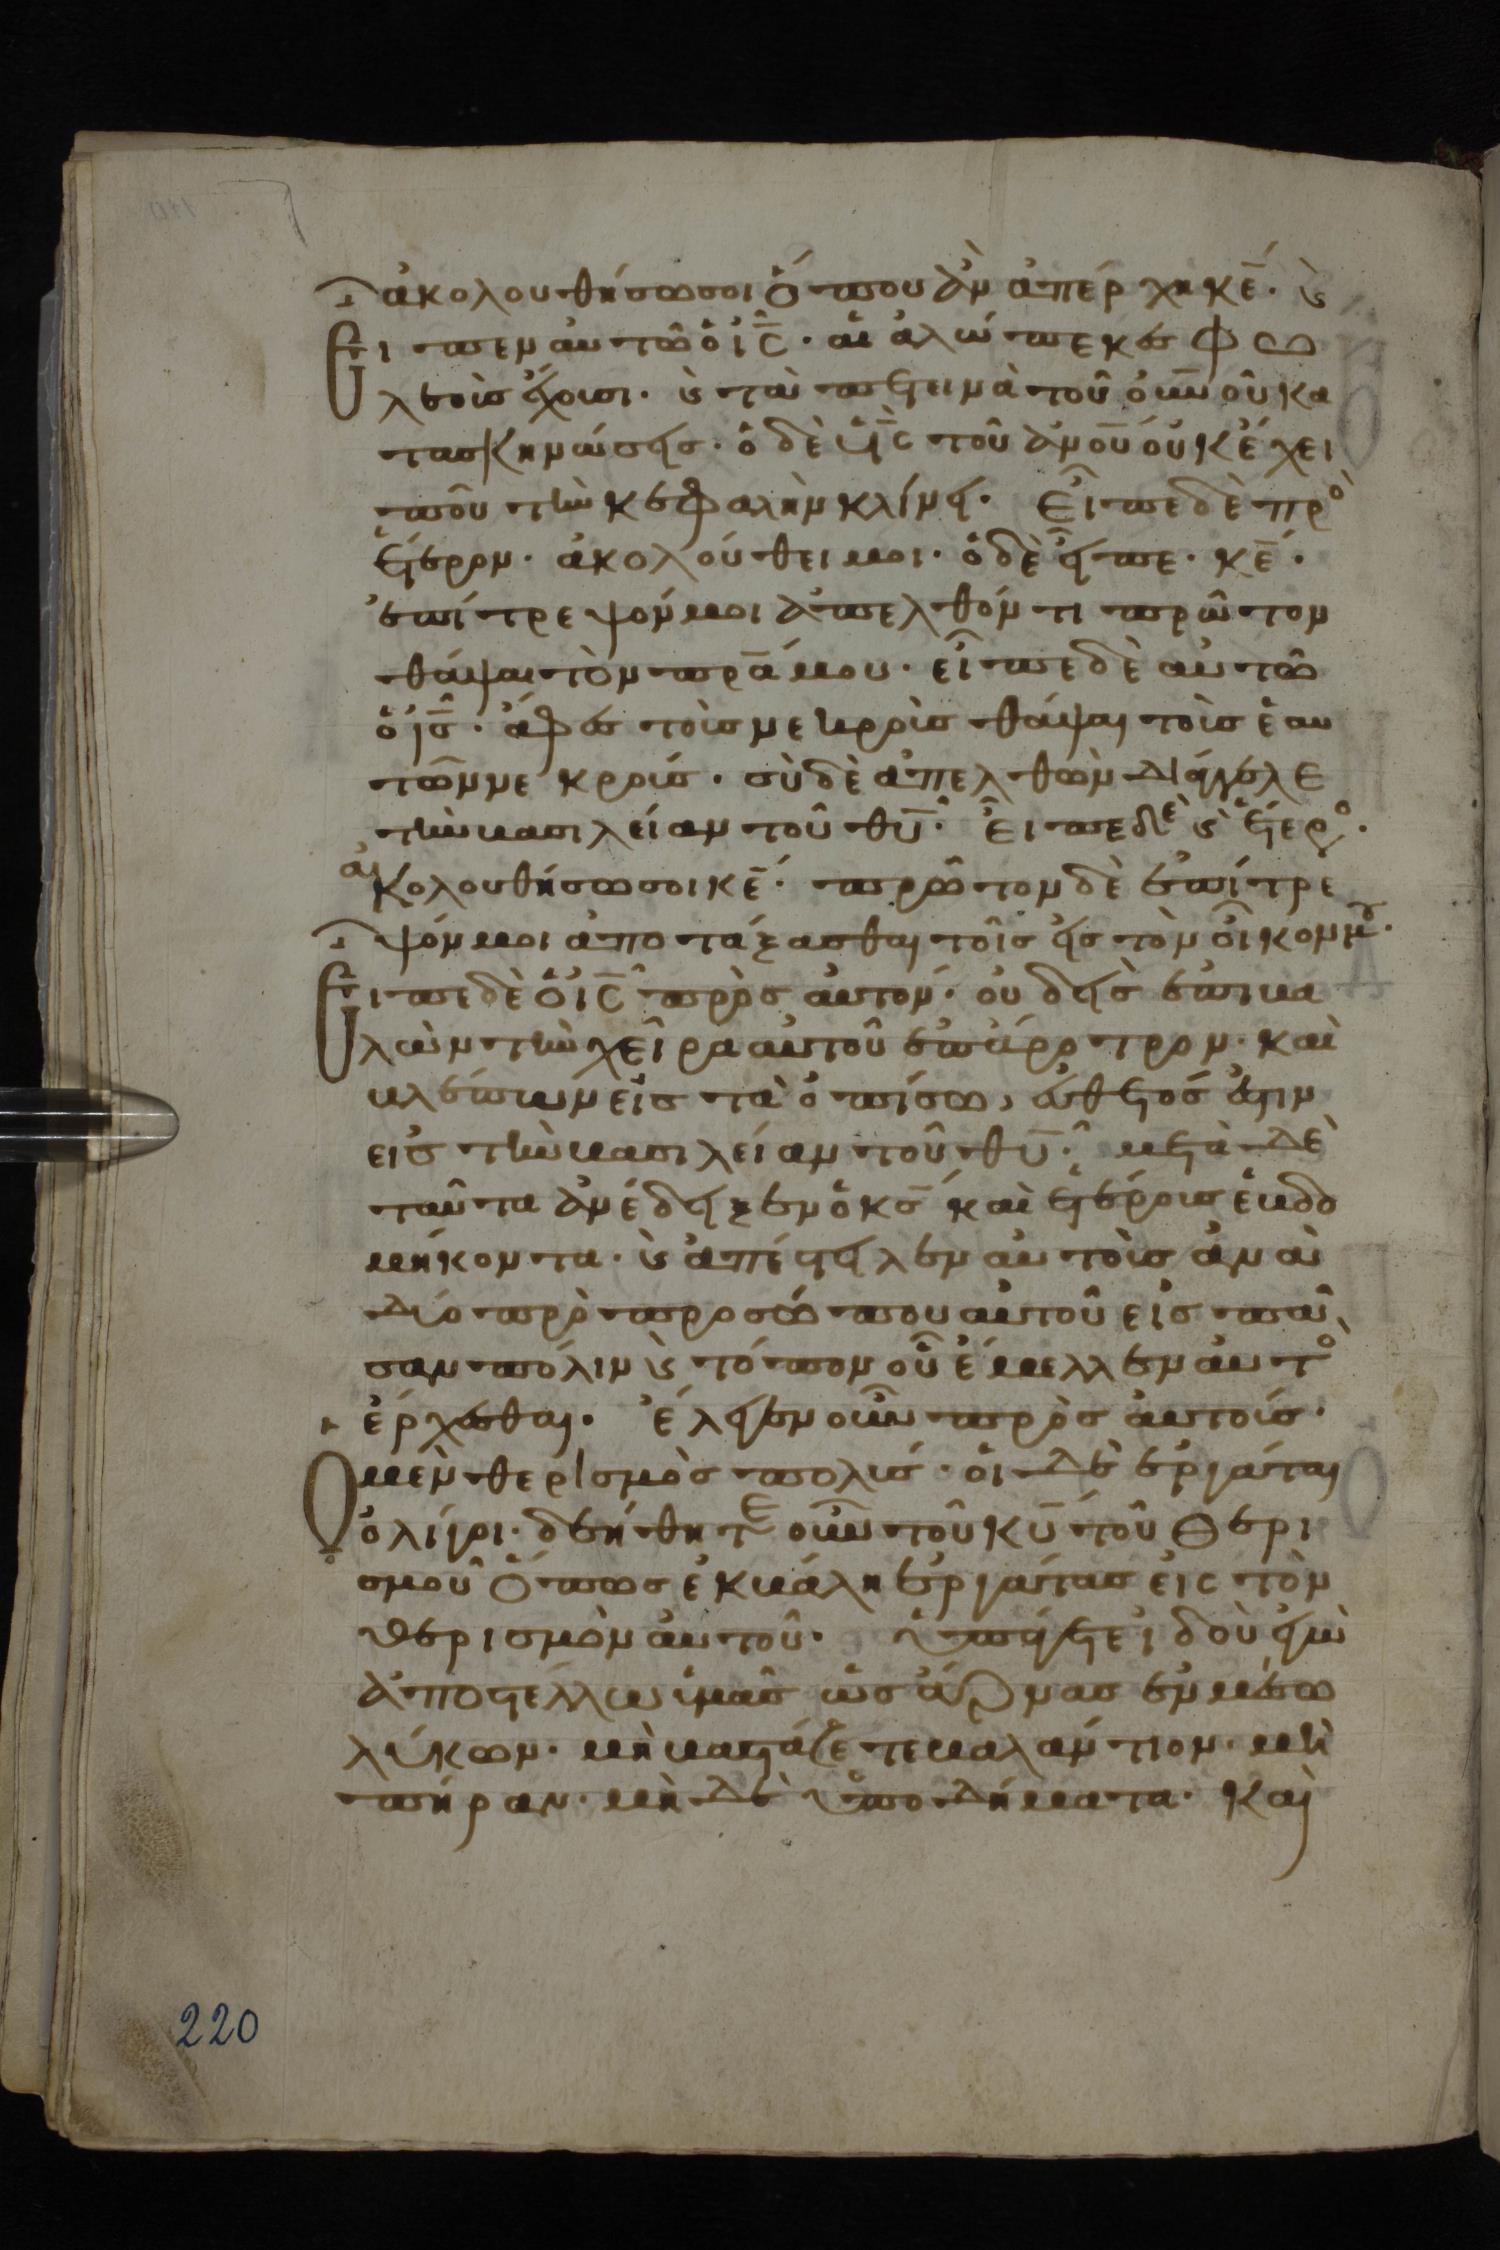 ἀκολουθήσω σοι ὅπου ἂν ἀπέρχη κ̅ε̅. ϗ
Εἶπεν αὐτῶ ὁ ι̅ς̅. αἱ ἀλώπεκες φω
λεοὺς ἔχουσι. ϗ τὰ πετεινὰ τοῦ ο̅υ̅ν̅ο̅υ̅ κα
τασκηνώσεις. ὁ δὲ υ̅ι̅ς̅ τοῦ α̅ν̅ο̅υ̅ οὐκ ἔχει
ποῦ τὴν κεφαλὴν κλίνει. Εἶπε δὲ πρὸ
ἕτερον. ἀκολούθει μοι. ὁ δὲ εἶπε. κ̅ε̅.
ἐπίτρεψόν μοι ἀπελθόντι πρῶτον
θάψαι τὸν π̅ρ̅α̅ μου. εἶπε δὲ αὐτῶ
ὁ ι̅ς̅. ἄφες τοὺς νεκροὺς θάψαι τοὺς ἑαυ
τῶν νεκρούς. σὺ δὲ ἀπελθὼν διάγγελε
τὴν βασιλείαν τοῦ θ̅υ̅. Εἶπε δὲ ϗ ἕτερο.
ἀκολουθήσω σοι κ̅ε̅. πρῶτον δὲ ἐπίτρε
ψόν μοι ἀποτάξασθαι τοῖς εἰς τὸν οἶκόν μου.
Εἶπε δὲ ὁ ι̅ς̅ πρὸς αὐτόν. οὐδεὶς ἐπιβα
λὼν τὴν χεῖρα αὐτοῦ ἐπ' ἄροτρον. καὶ
βλέπων εἰς τὰ ὀπίσω, εὔθετός ἐστιν
εἰς τὴν βασιλείαν τοῦ θ̅υ̅. μετὰ δὲ
ταῦτα ἀνέδειξεν ὁ κ̅ς̅ καὶ ἑτέρους ἑβδο
μήκοντα. ϗ ἀπέστειλεν αὐτοὺς ἀνὰ
δύο πρὸ προσώπου αὐτοῦ εἰς πᾶ
σαν πόλιν ϗ τόπον οὗ ἔμελλεν αὐτὸ
ἔρχεσθαι. ἔλεγεν οὖν πρὸς αὐτούς.
Ὁ μὲν θερισμὸς πολύς. οἱ δὲ ἐργάται
ὀλίγοι. δεήθητε οὖν τοῦ κ̅υ̅ τοῦ θερι
σμοῦ ὅπως ἐκβάλη ἐργάτας εἰς τὸν
θερισμὸν αὐτοῦ. ὑπάγετε ἰδοὺ ἐγὼ
ἀποστέλλω ὑμᾶς ὡς ἄρνας ἐν μέσω
λύκων. μὴ βαστάζετε βαλάντιον. μὴ
πήραν. μὴ δὲ ὑποδήματα. Καὶ
220